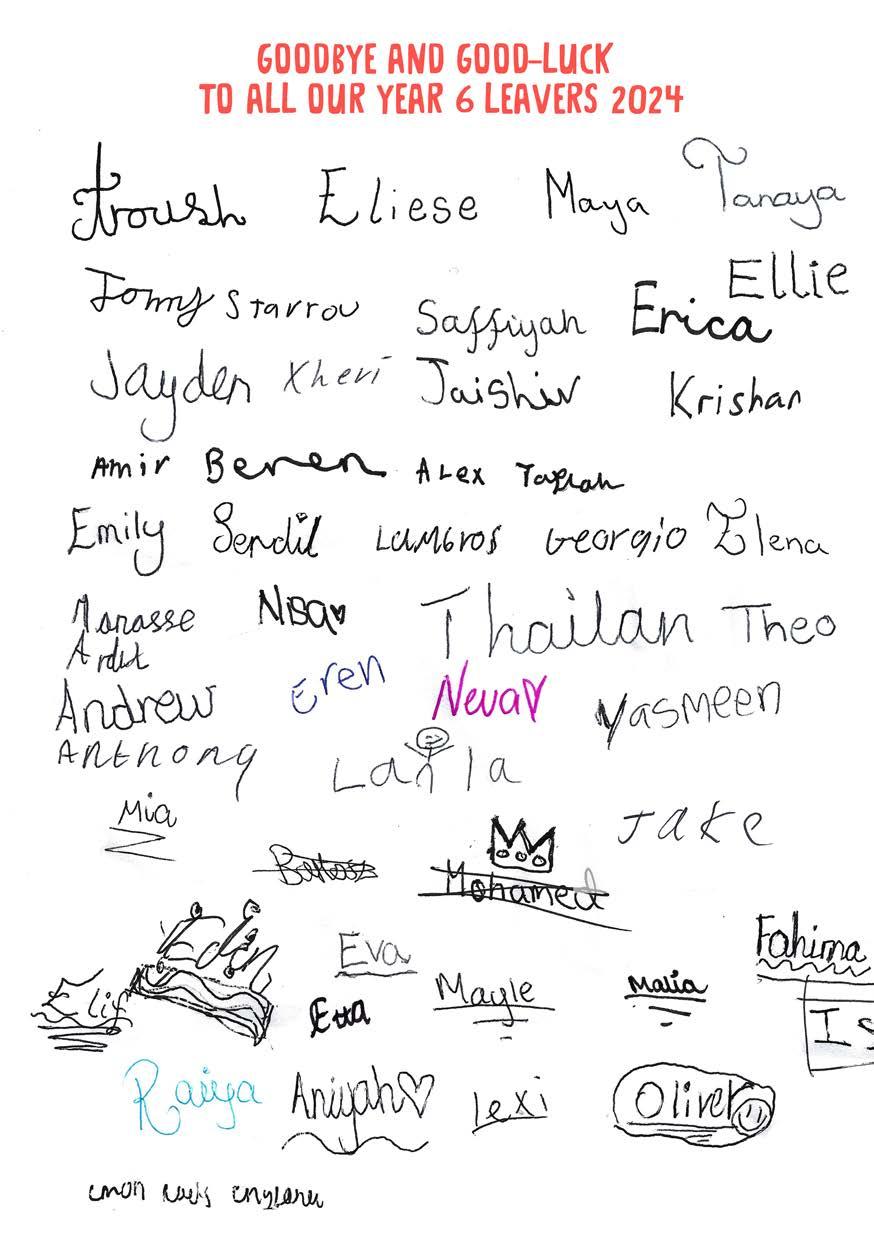 GOODBYE AND GOOD-LUCK
TO ALL OUR YEAR 6 LEAVERS 2024
Eliese Maya Tanaya
Ellie
Starrou Saffiyah Erica
Jayden Xheri Jaishiv Krishan
Amir Beren Alex
Emily Sendil Lambros Georgio Elena
Manasse Nisa Thailan Theo
Ardit
Andrew Eren Neva Yasmeen
Anthony Laila
Mia Jake
Mohamed
Eva Fahima
Elif Mayle Malia
Etta
Raiya Aniyah Lexi Oliver
cmon lads